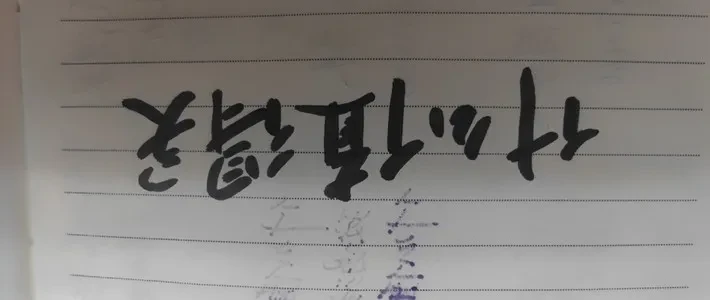 什么值得买